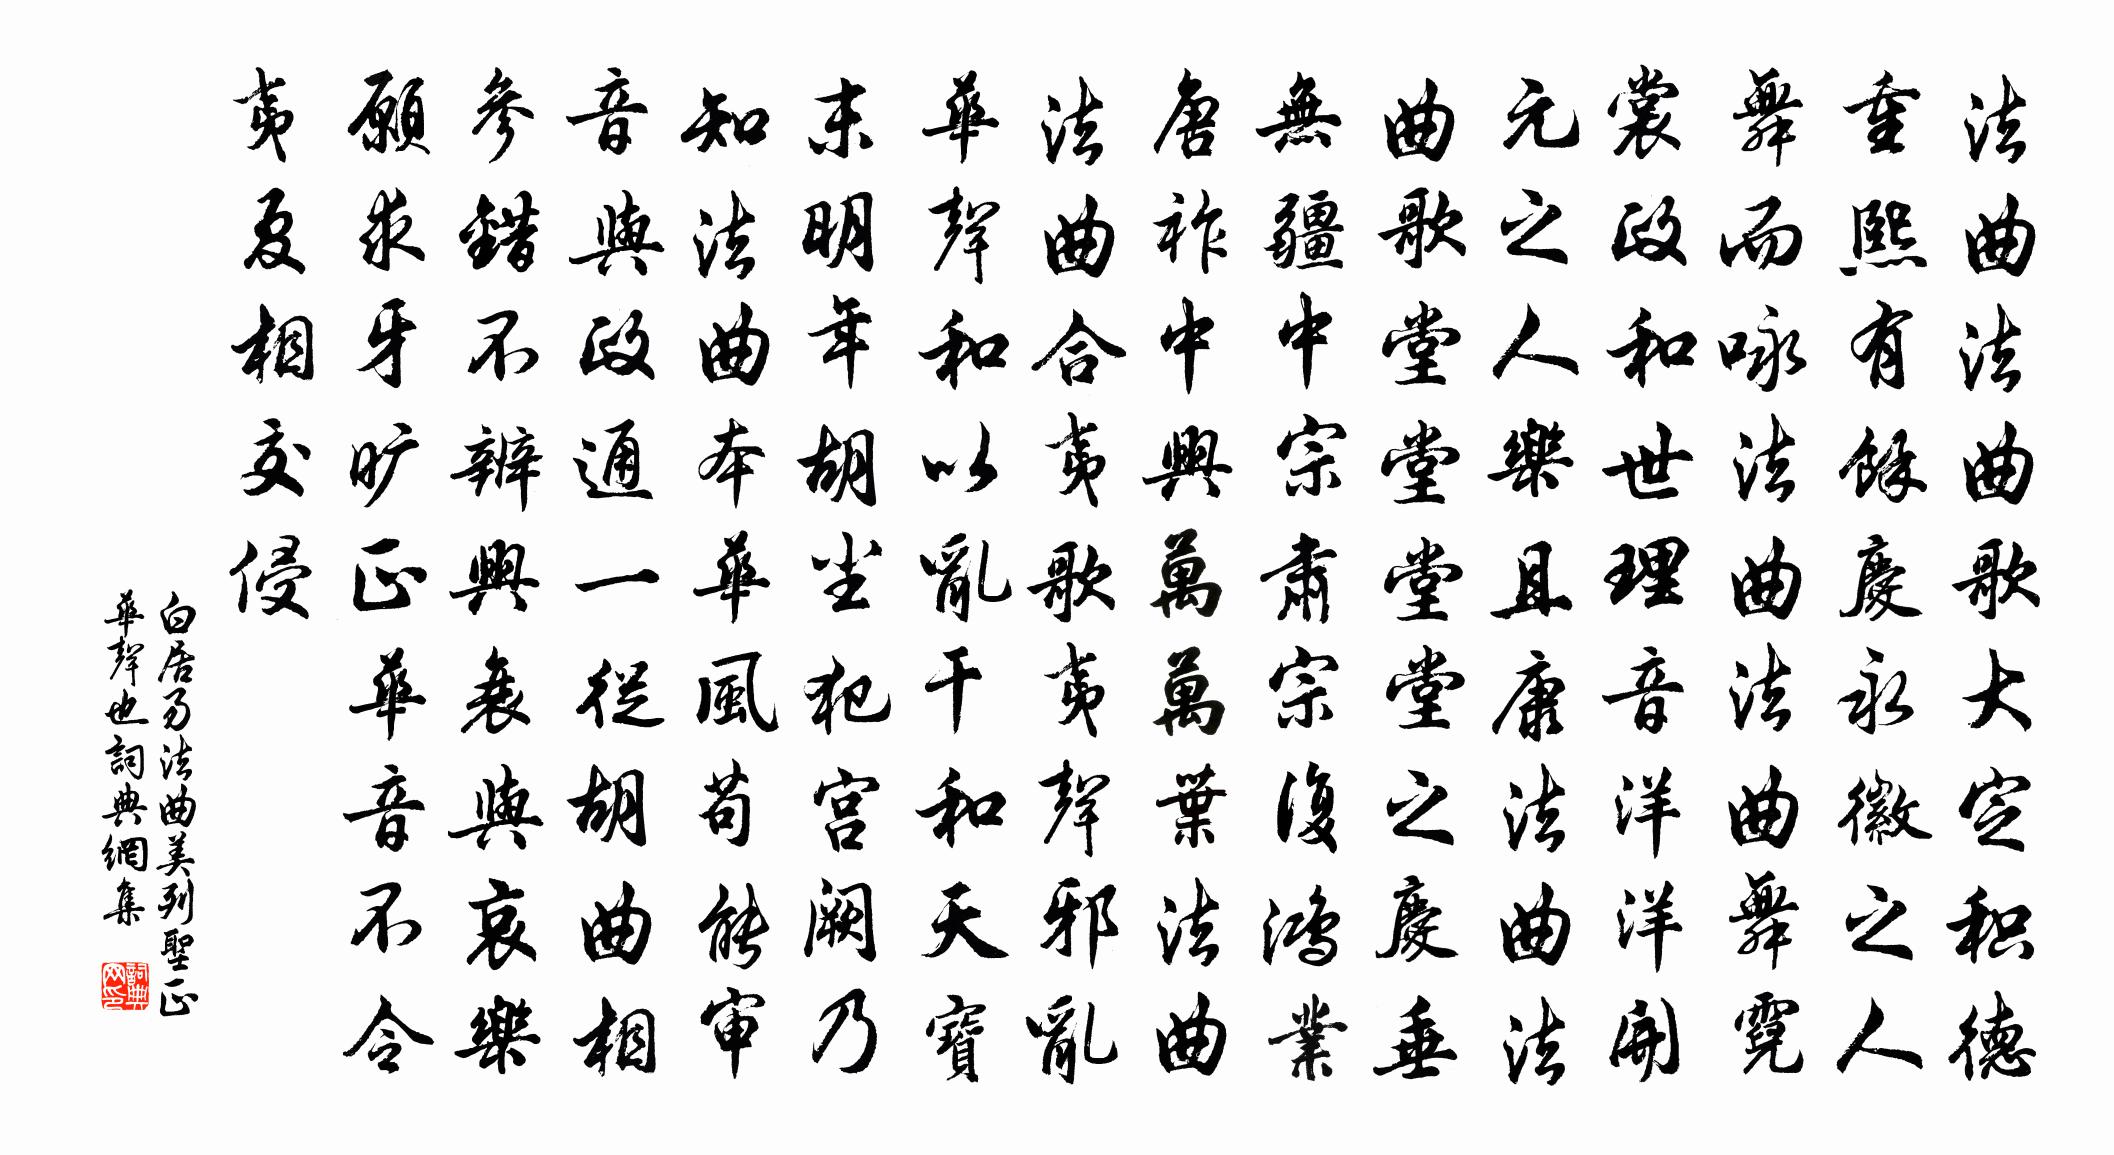 法曲法曲歌大定积德
重熙有餘慶永徽之人
舞而咏法曲法曲舞霓
裳政和世理音洋洋開
元之人樂且康法曲法
曲歌堂堂堂堂之慶垂
無疆中宗肅宗復鴻業
唐祚中興萬萬葉法曲
法曲合夷歌夷聲邪亂
華聲和以亂干和天寶
末明年胡尘犯宫阙乃
知法曲本華風苟能审
音與政通一從胡曲相
參錯不辨興衰與哀樂
願求牙旷正華音不令
夷夏相交侵
白居易法曲美列聖正
華聲也詞典網集
詞典网印